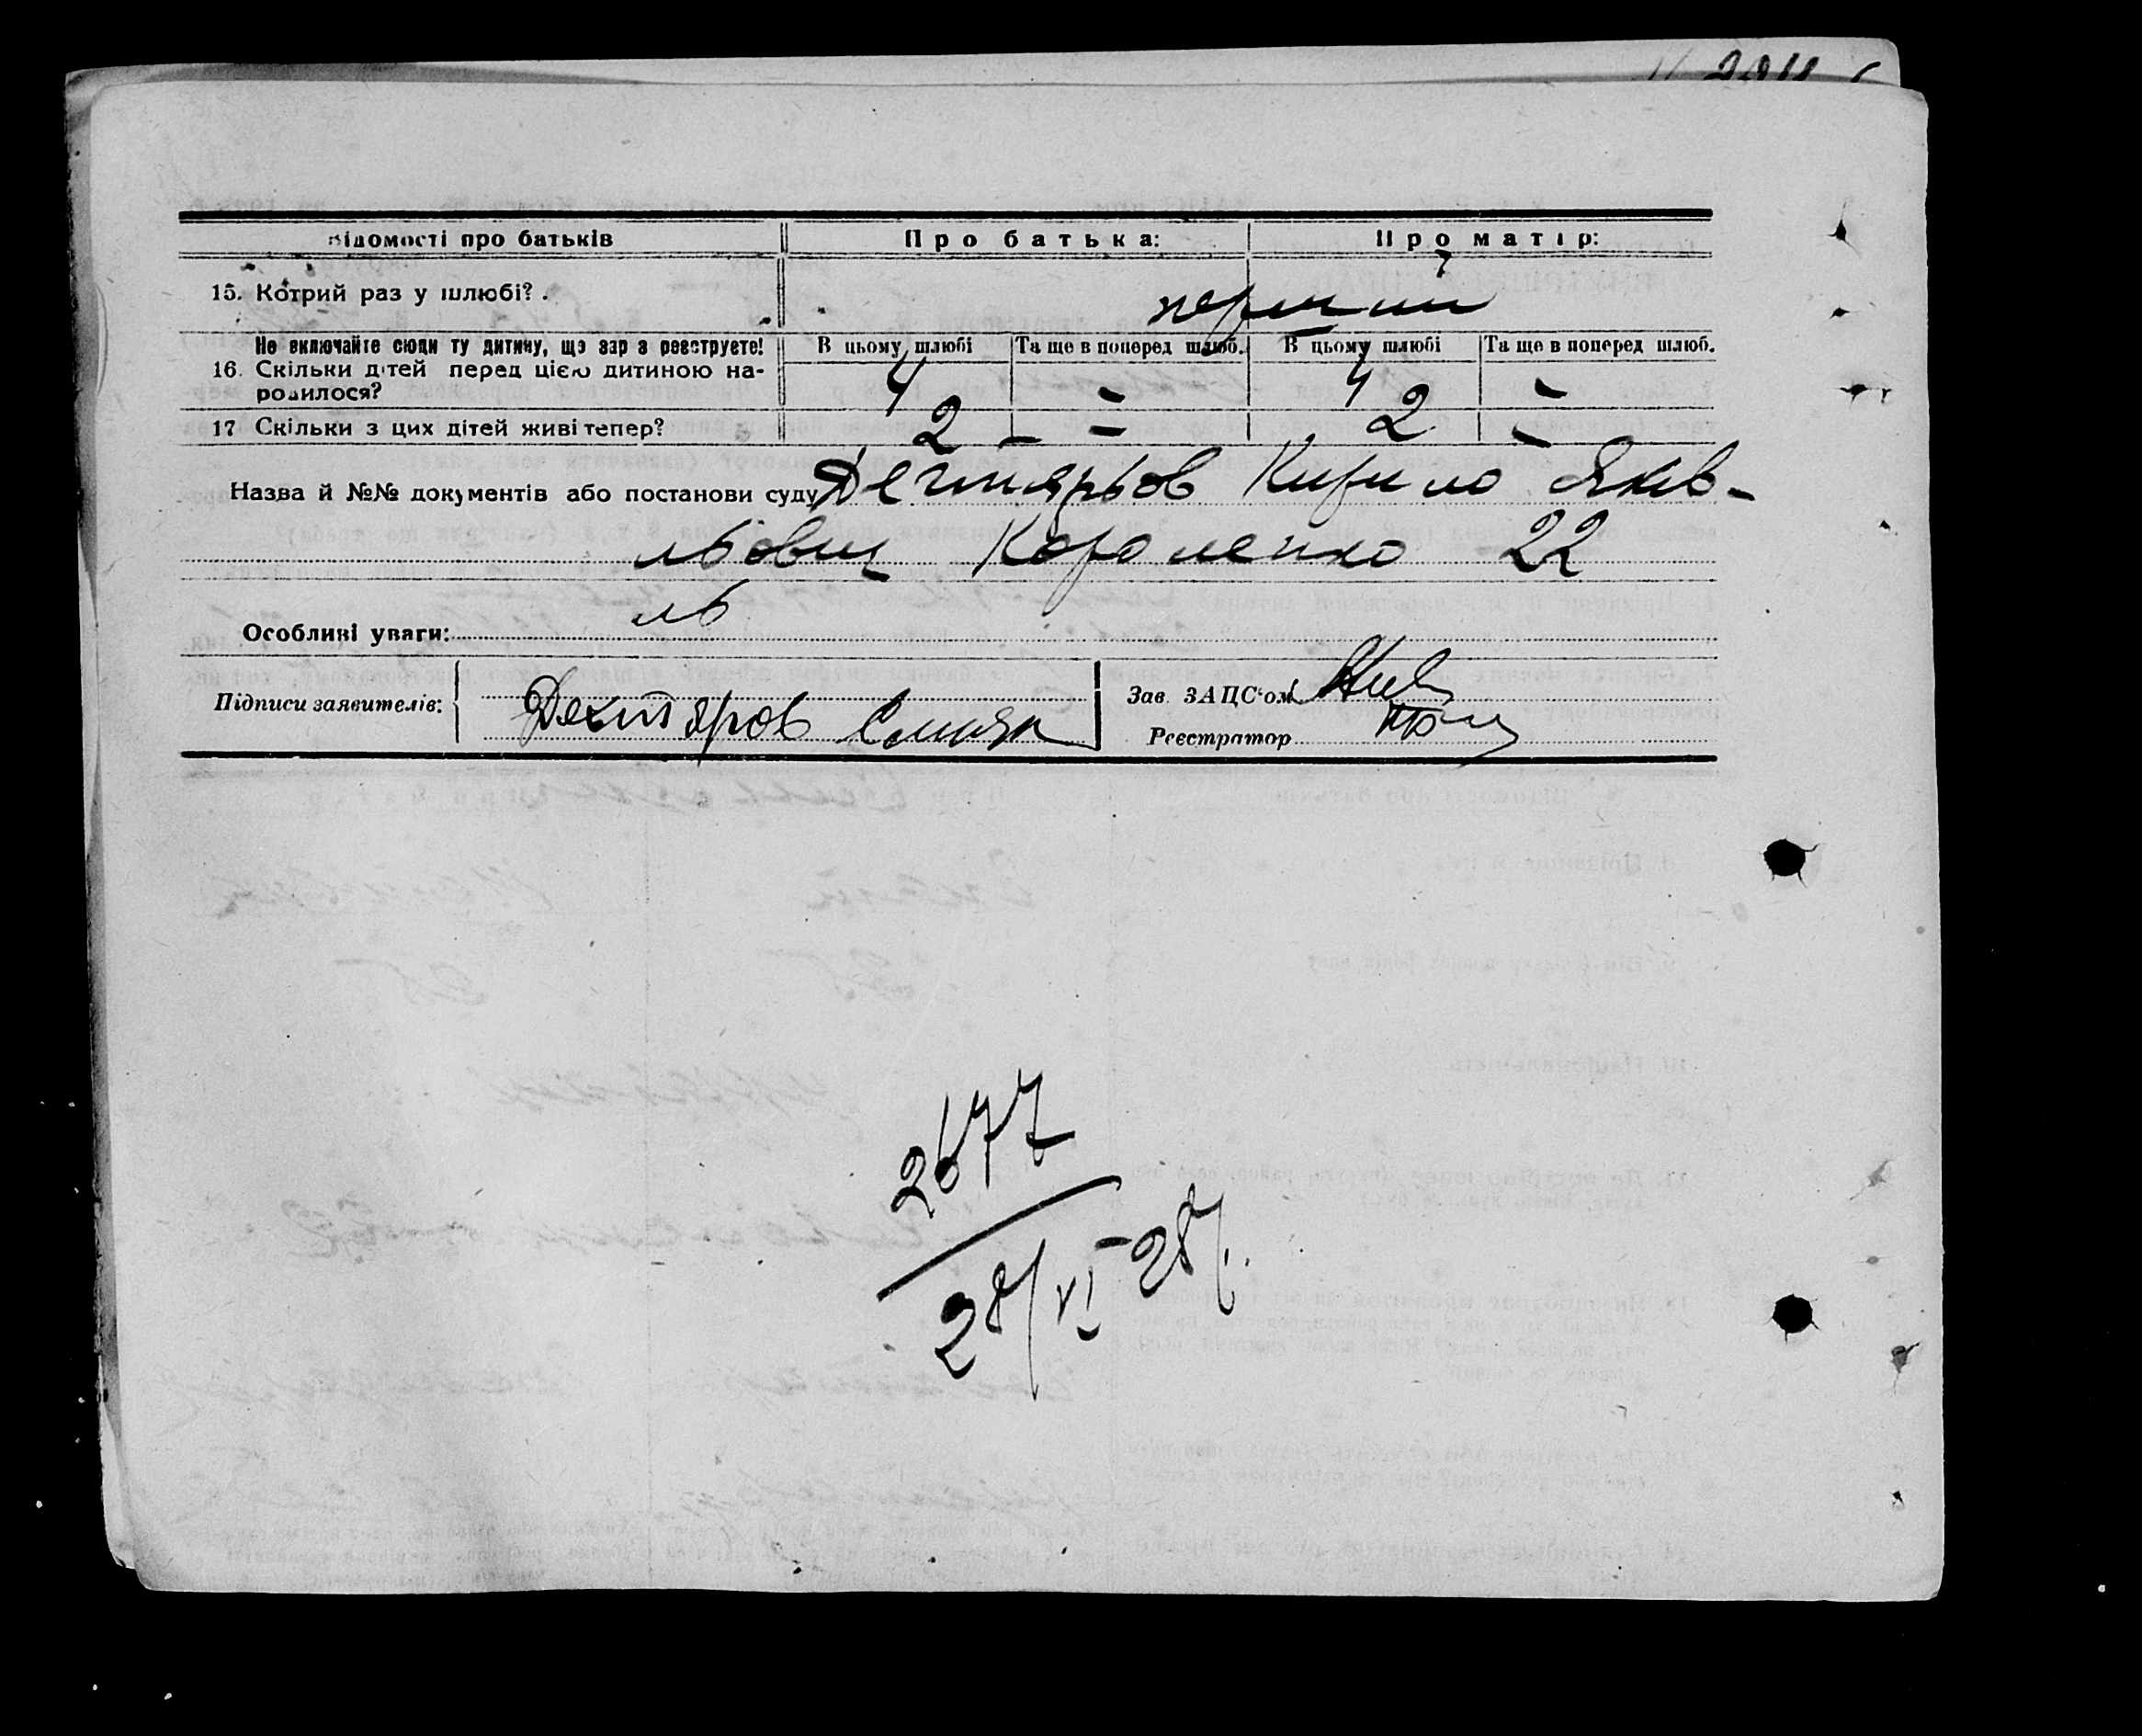 Відомості про батьків
Про батька:
Про матір:
15. Котрий раз у шлюбі?
перший
Не включайте сюди ту дитину, що зараз реєструєте!
16. Скільки дітей перед цією дитиною на-
родилося?
В цьому шлюбі
Та ще в поперед шлюб.
В цьому шлюбі
Та ще в поперед шлюб.
4 – 4 –
17 Скільки з цих дітей живі тепер?
2 – – 2 –
Назва й №№ документів або постанови суду Дегтярьов Кирило Яків-
львич Короленко 22
ль
Особливі уваги:
Підписи заявителів:
Дехтяров
Зав. ЗАЦС'ом
Реєстратор
2677
28/VI–28р.